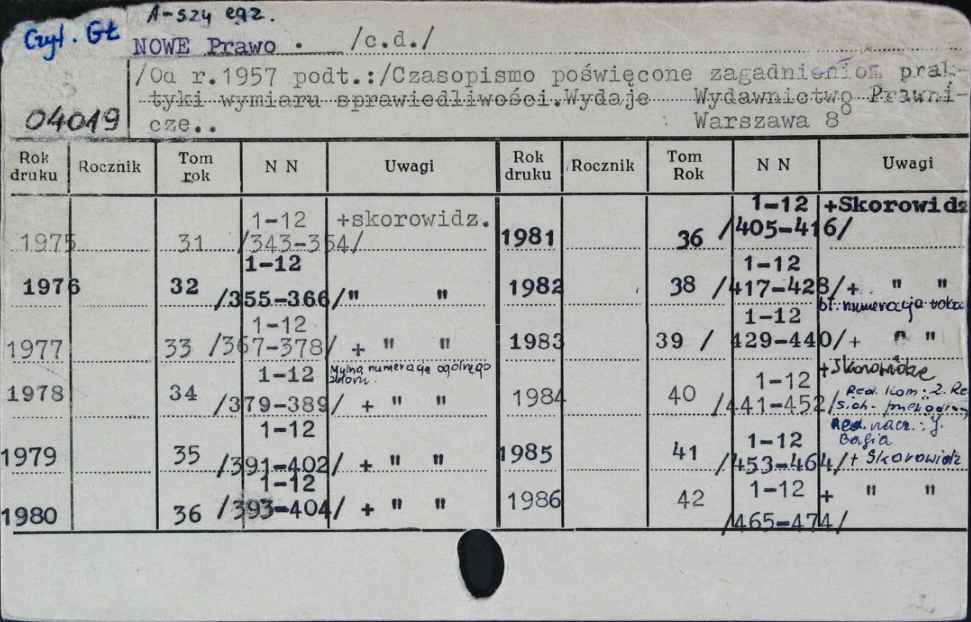 A-szy egz.
Czyt. Gł
NOWE Prawo . /c.d./
/Od r.1957 podt.:/Czasopismo poświęcone zagadnieniom prak-
tyki wymiaru sprawiedliwości.Wydaje Wydawnictwo Prawni-
04019 cze.. Warszawa 8°
Rok druku Rocznik Tom rok N N Uwagi Rok druku Rocznik Tom Rok N N Uwagi
1975 31 1-12 /343-354/ +skorowidz. 1981 36 1-12 /405-416/ +Skorowidz
1976 32 1-12 /355-366/ " " 1982 38 1-12 /417-428/ + " "
bł. numeracja roku
1977 33 1-12 /367-378/ + " " 1983 39 / 1-12 429-440/ + " "
Mylna numeracja ogólnego
1978 34 1-12 /379-389/ + " " 1984 40 1-12 /441-452/ +Skorowidze
Red. nacz.: J.
Bafia
1979 35 1-12 /391-402/ + " " 1985 41 1-12 /453-464/ + Skorowidz
1980 36 1-12 /393-404/ + " " 1986 42 1-12 /465-474/ + " "